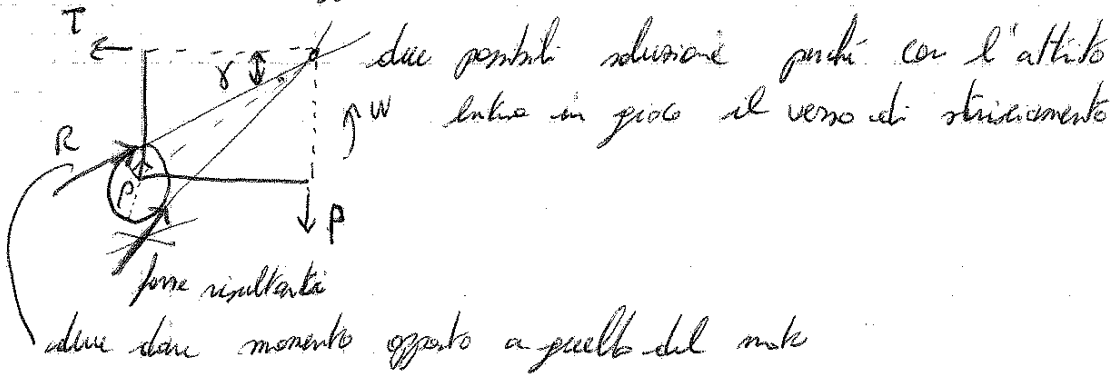 T
γ
due possibili soluzione perché con l'attrito
R
W
entra in gioco il verso di strisciamento
ρ
P
forze risultanti
deve dare momento opposto a quello del moto